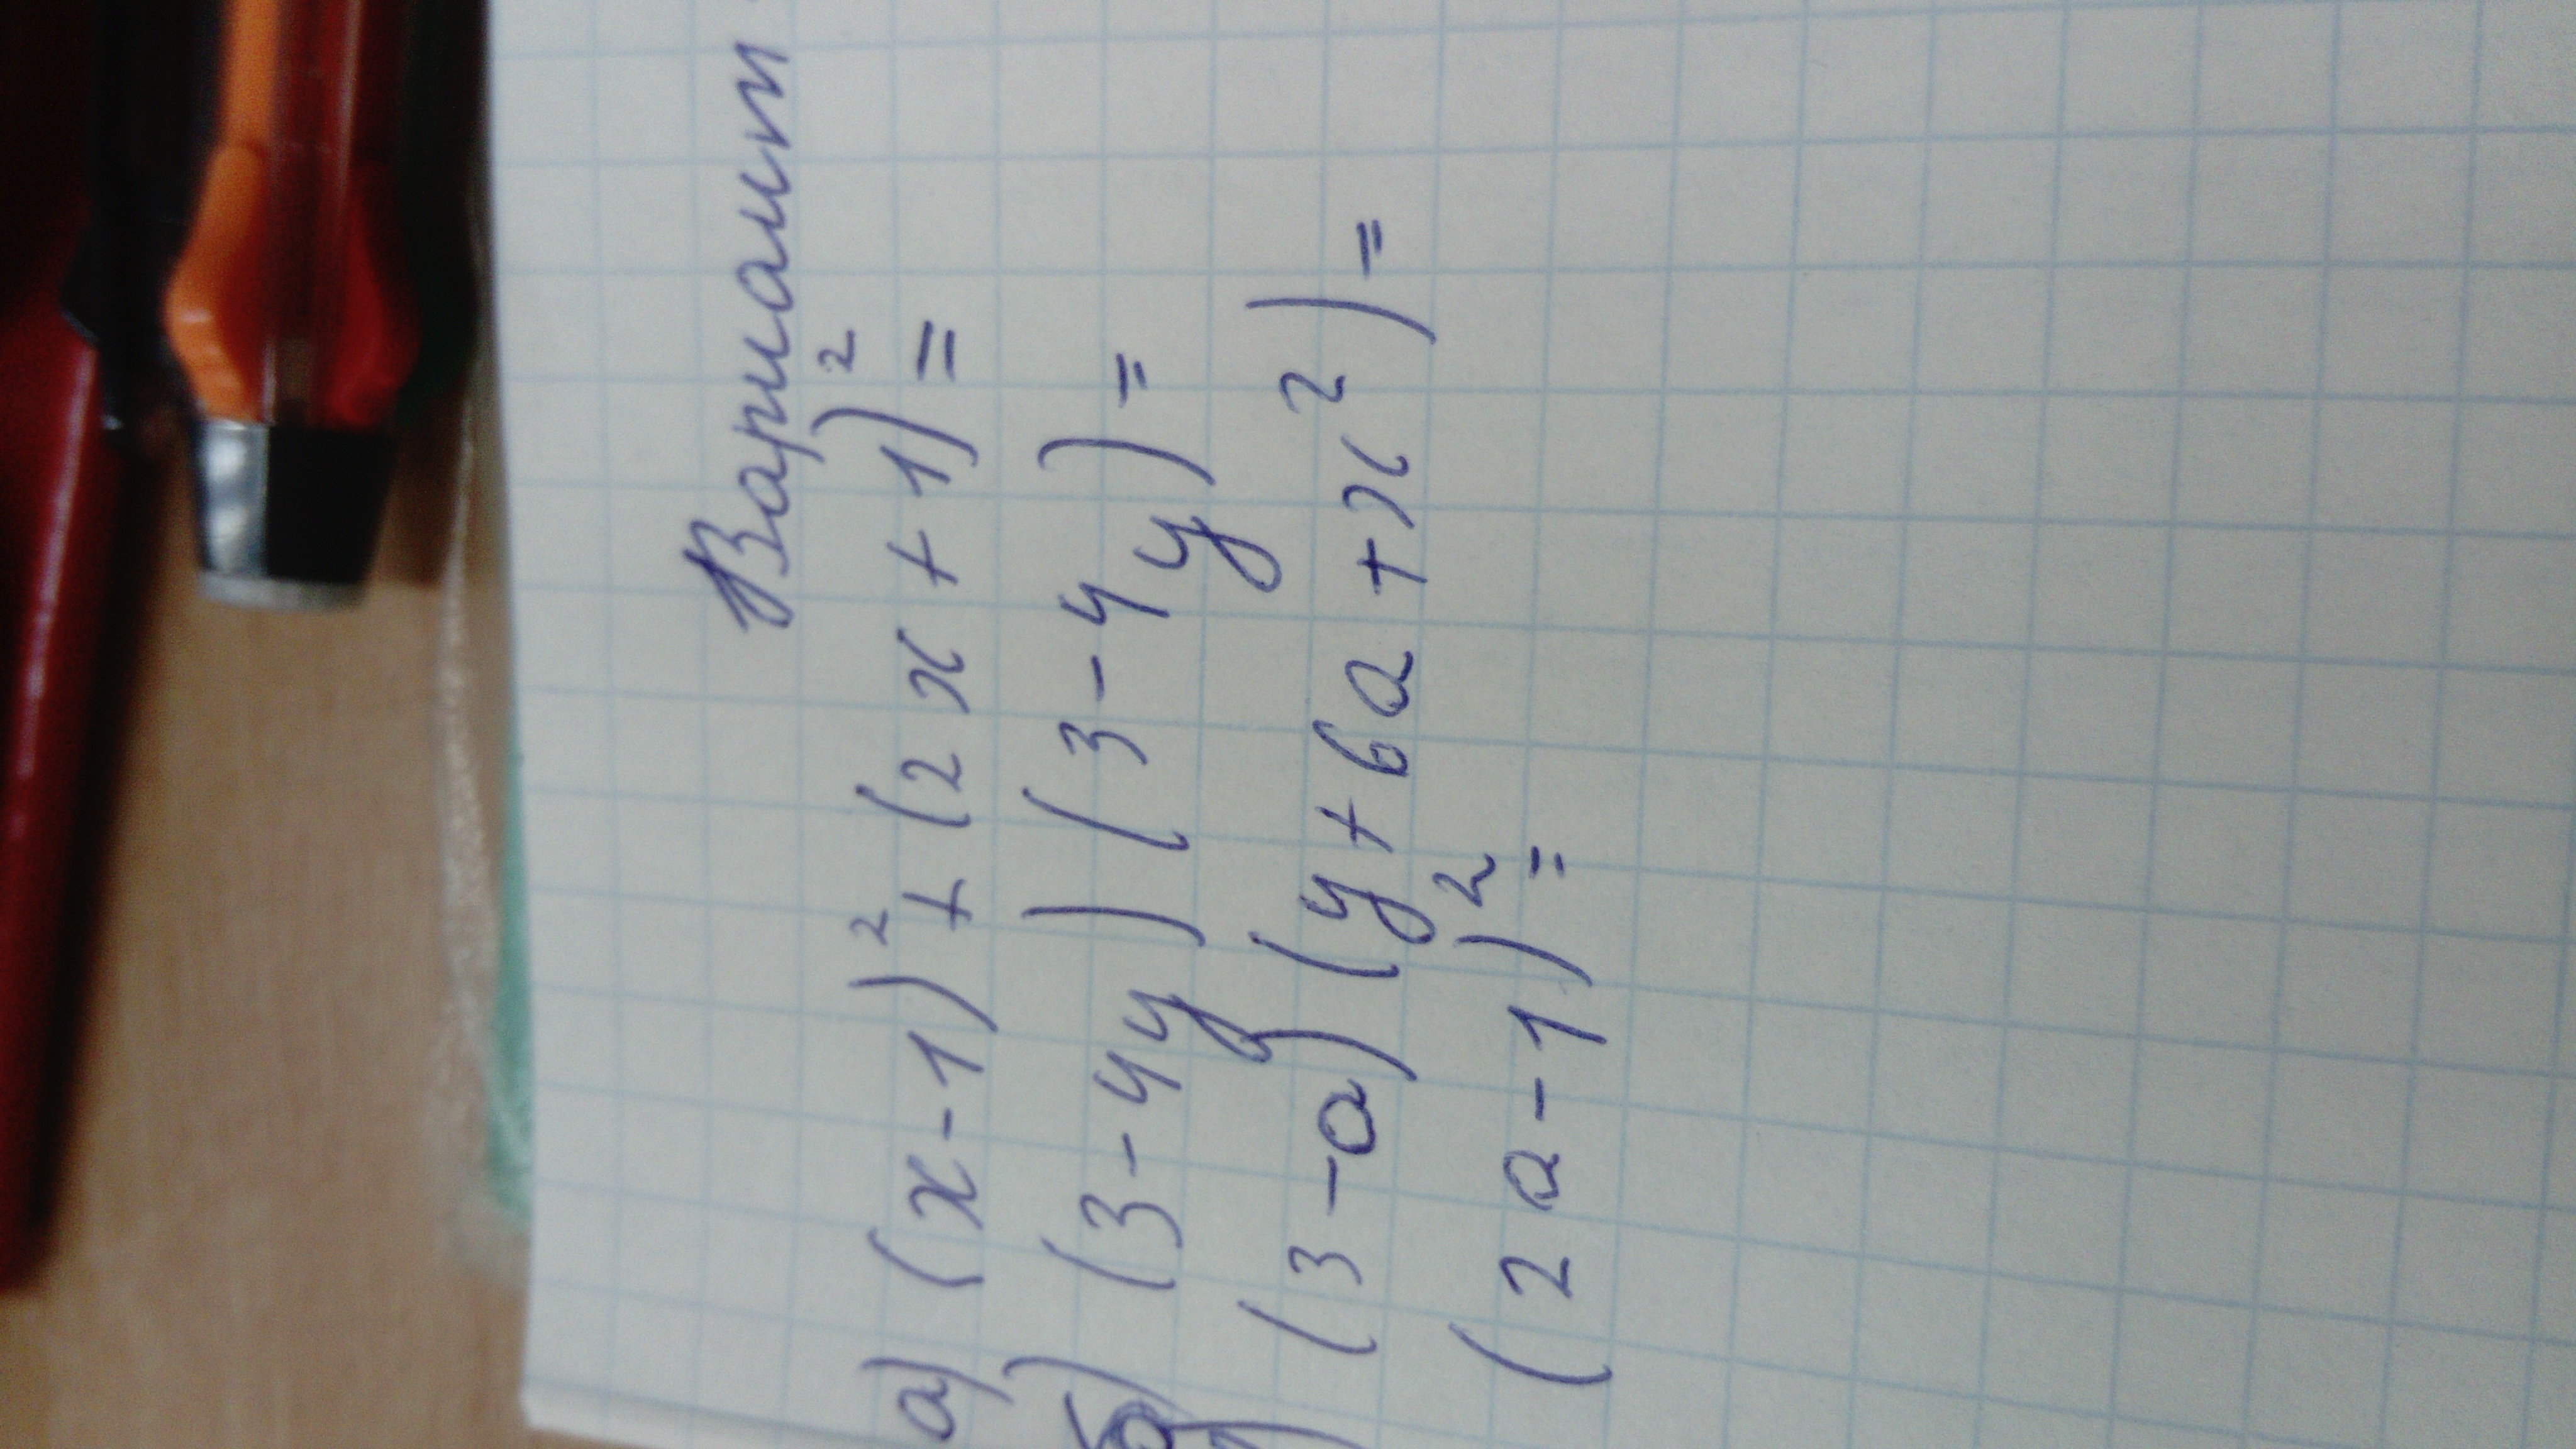 Вариант
а) (x-1)² + (2x+1)² =
б) (3-4y)(3-4y) =
(3-a)(y+6a+x²) =
(2a-1)² =